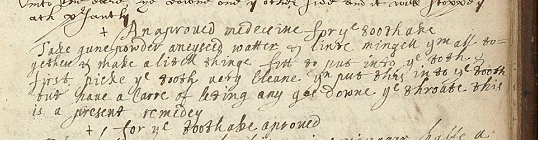 into the eare, lye downe one ye other side and it will stoppe
+ An aproued medecine for ye toothake
Take gunepowder aneyseed watter & linte mingell ym all to-
gether & make a litell thinge fitt to put into ye toth &
first picke ye tooth uery cleane yn put this in to ye tooth
but haue a Care of leting any goe downe ye throate this
is a present remedey
+ for ye toothake aproued
halfe a